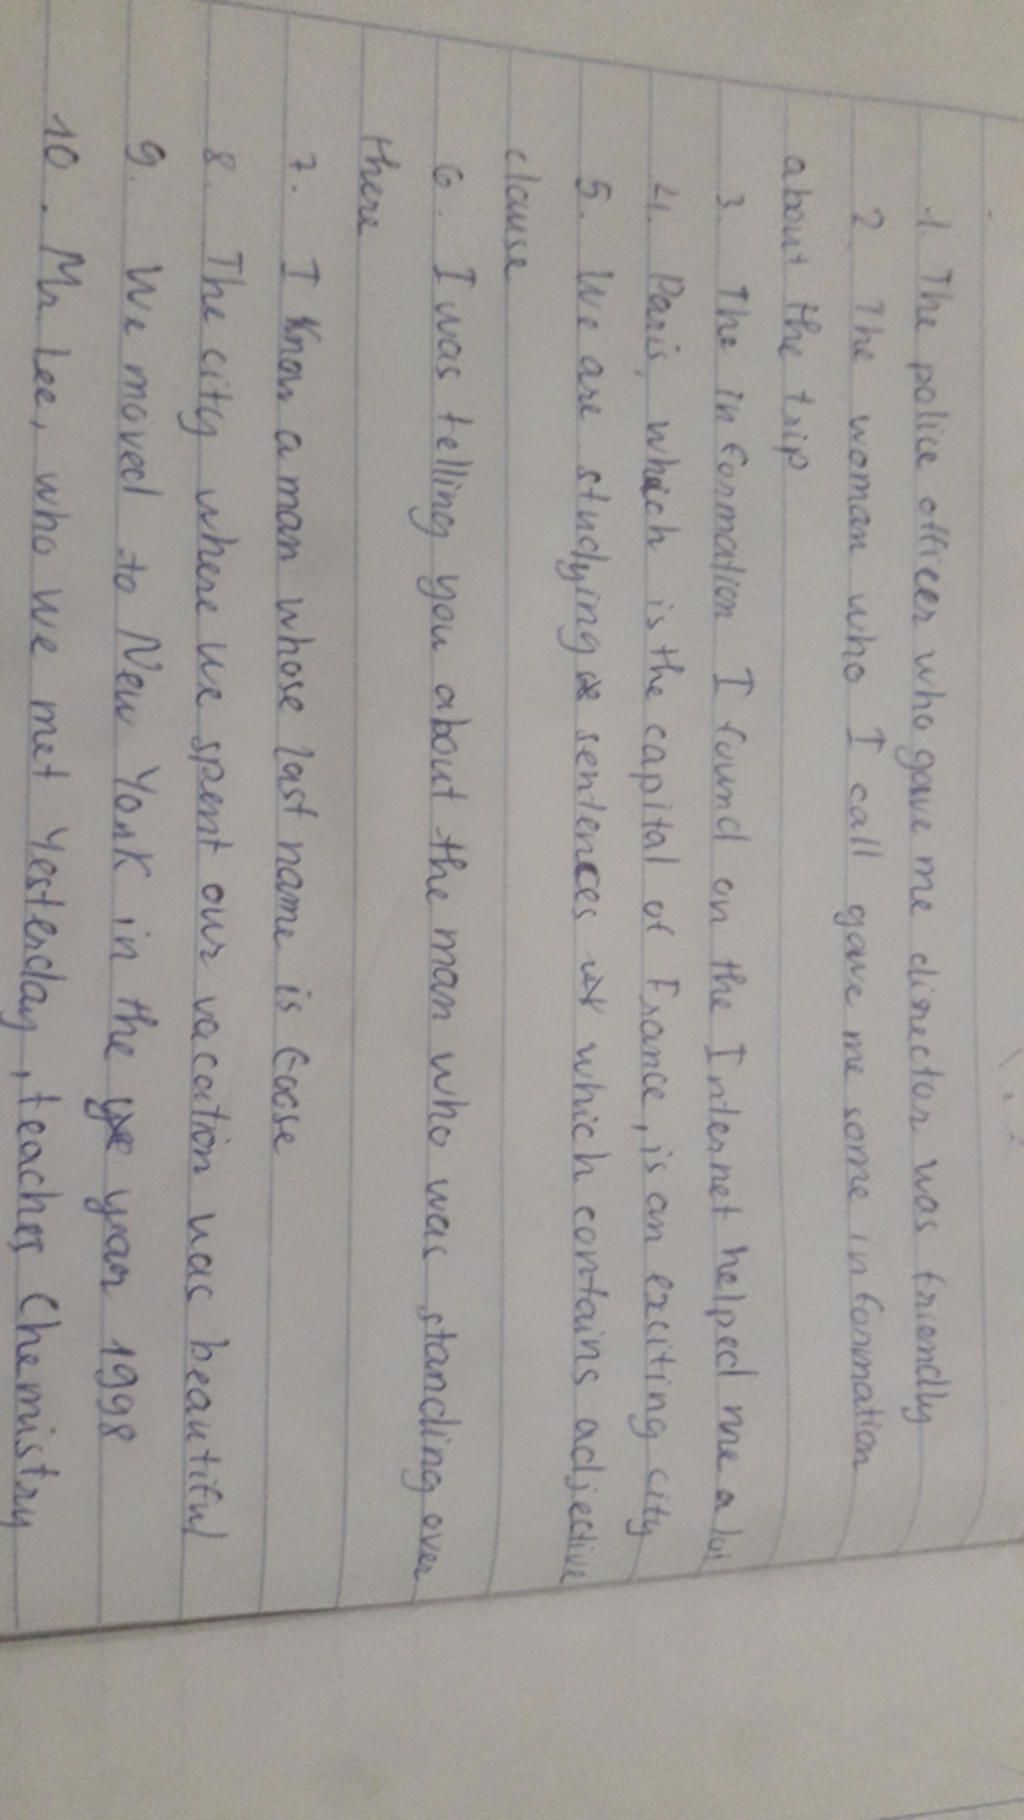 1. The police officer who gave me director was friendly
2. The woman who I call gave me some information
about the trip
3. The information I found on the Internet helped me a lot
4. Paris, which is the capital of France, is an exciting city
5. We are studying sentences which contains adjective
clause
6. I was telling you about the man who was standing over
there
7. I know a man whose last name is Goose
8. The city where we spent our vacation was beautiful
9. We moved to New York in the year 1998
10. Mr Lee, who we met Yesterday, teaches Chemistry